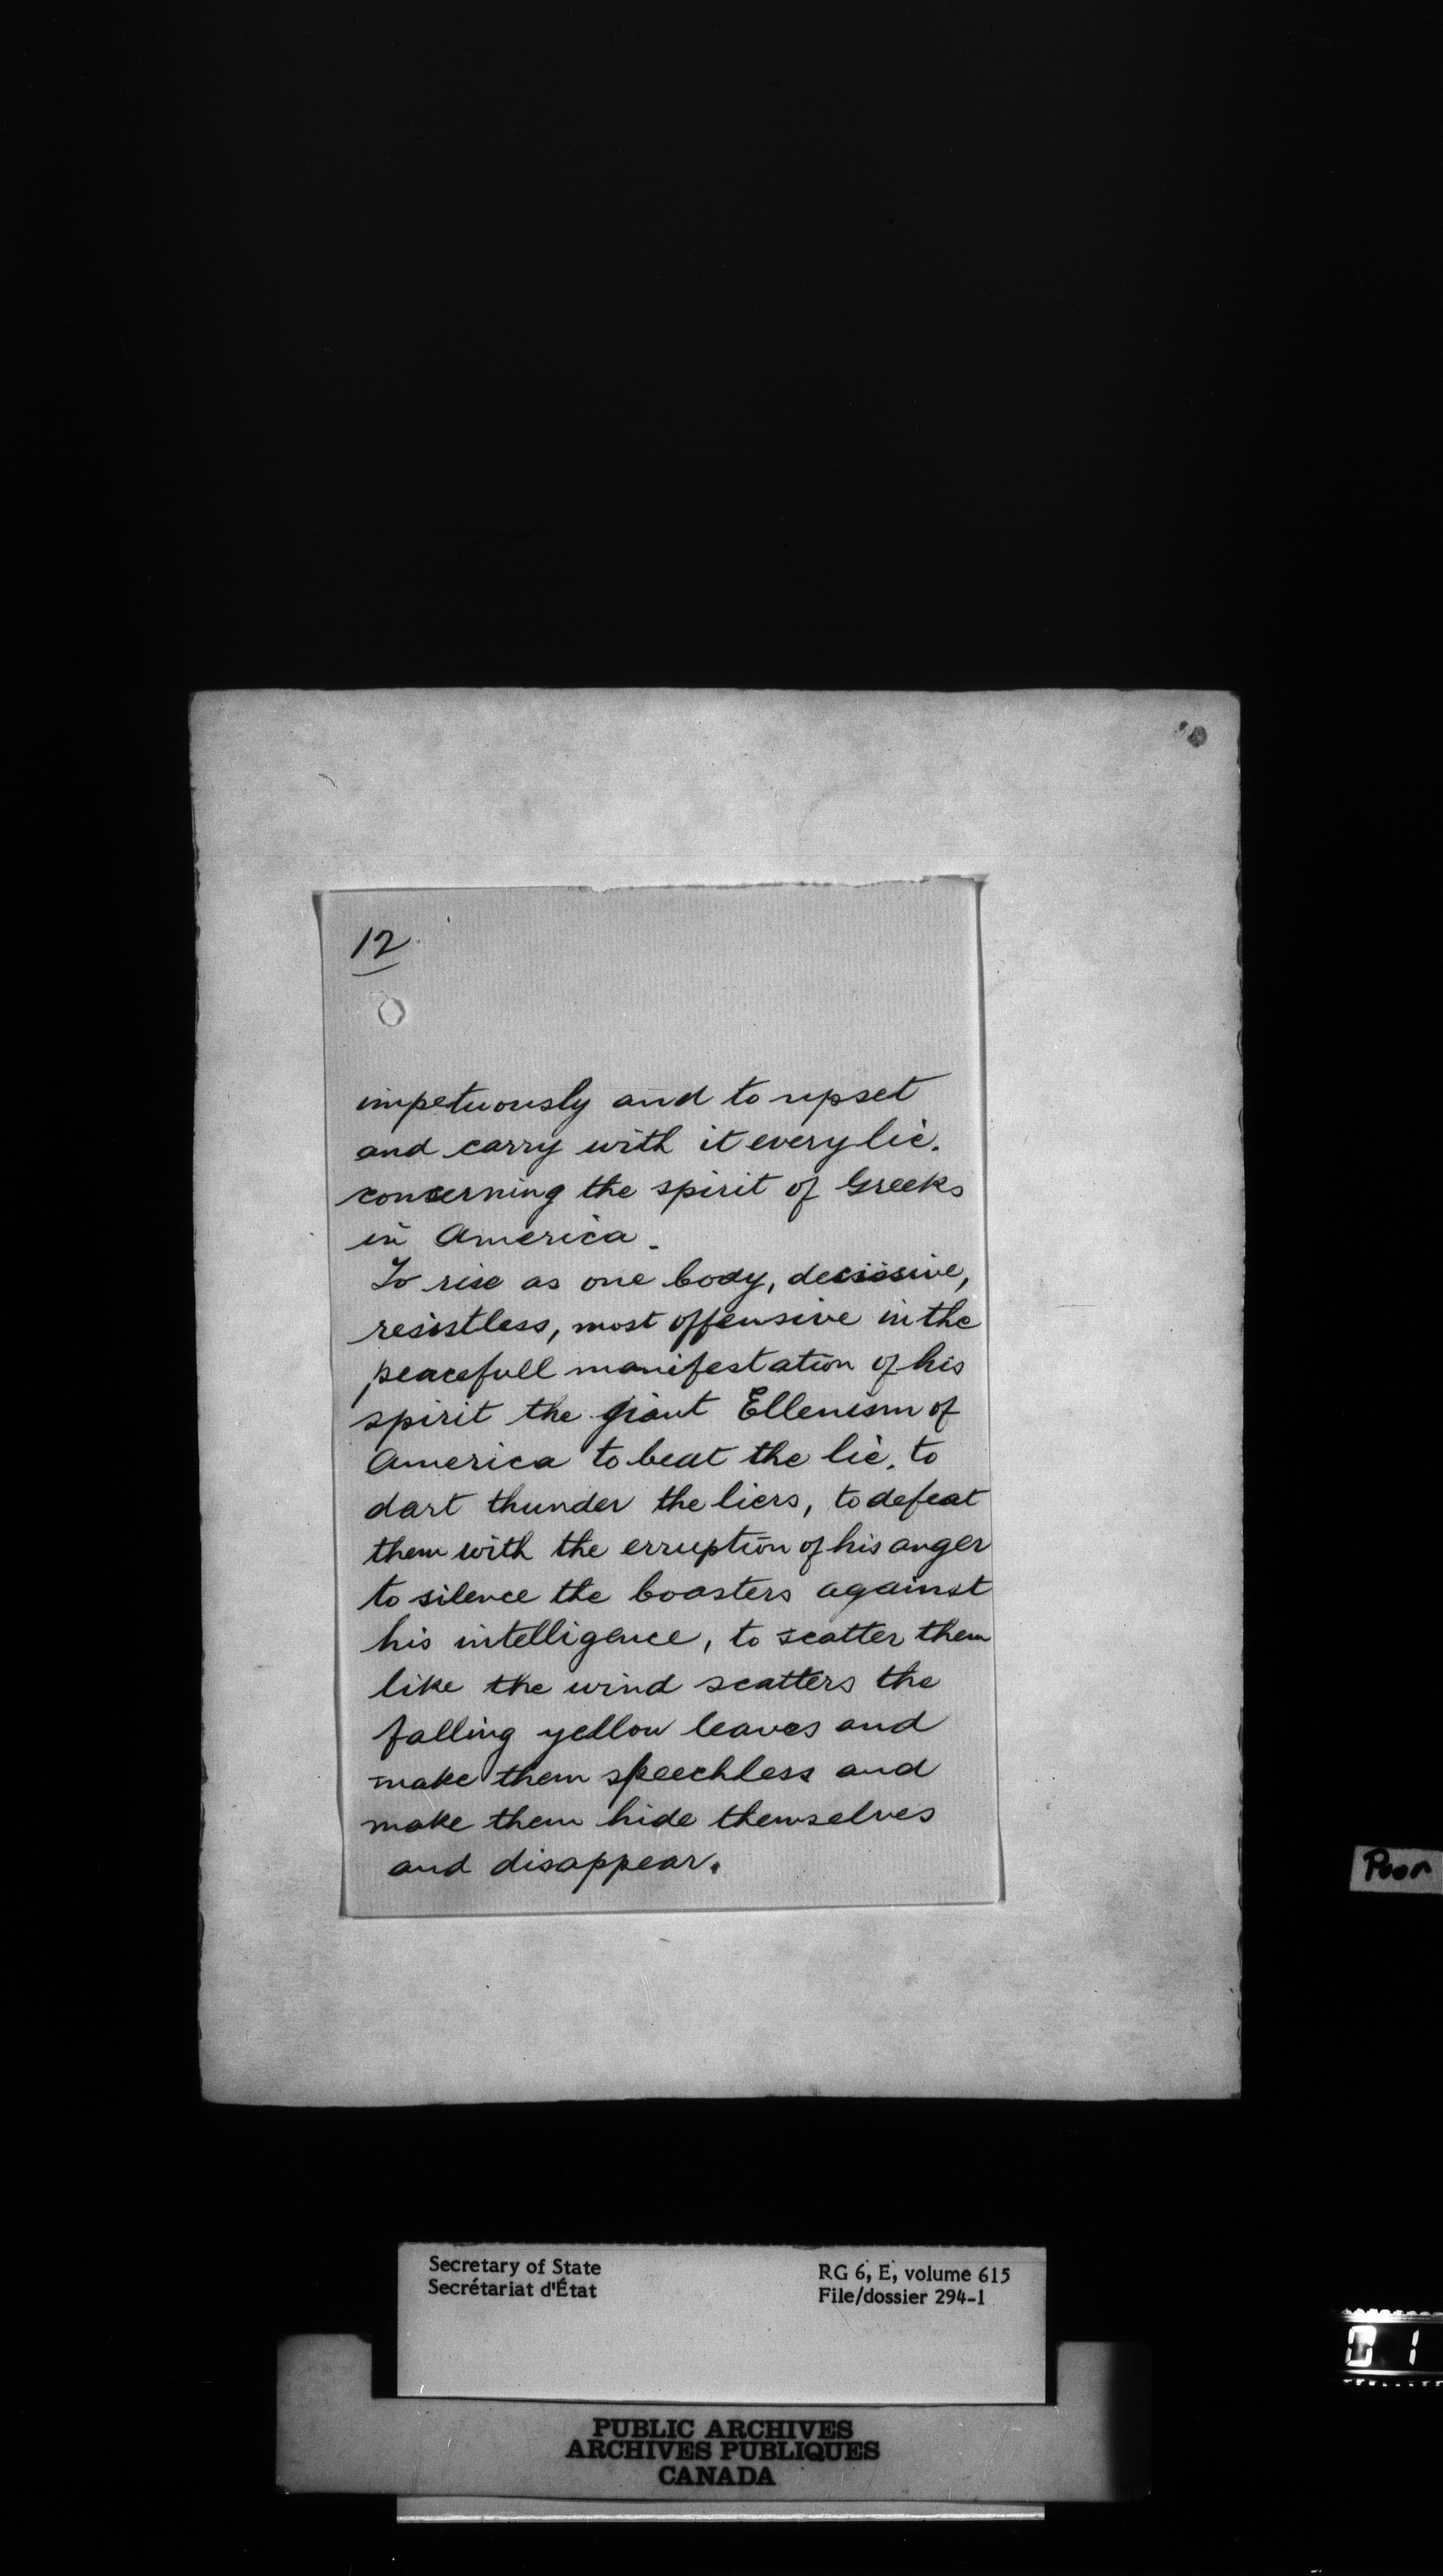 12
impetuously and to upset
and carry with it every lie.
concerning the spirit of Greeks
in America.
To rise as one body, decissive,
resistless, most offensive in the
peacefull manifestation of his
spirit the giant Ellenism of
America to beat the lie, to
dart thunder the liers, to defeat
them with the erruption of his anger
to silence the boasters against
his intelligence, to scatter them
like the wind scatters the
falling yellow leaves and
make them speechless and
make them hide themselves
and disappear.
Poor
Secretary of State
Secrétariat d'État
RG 6, E, volume 615
File/dossier 294-1
PUBLIC ARCHIVES
ARCHIVES PUBLIQUES
CANADA